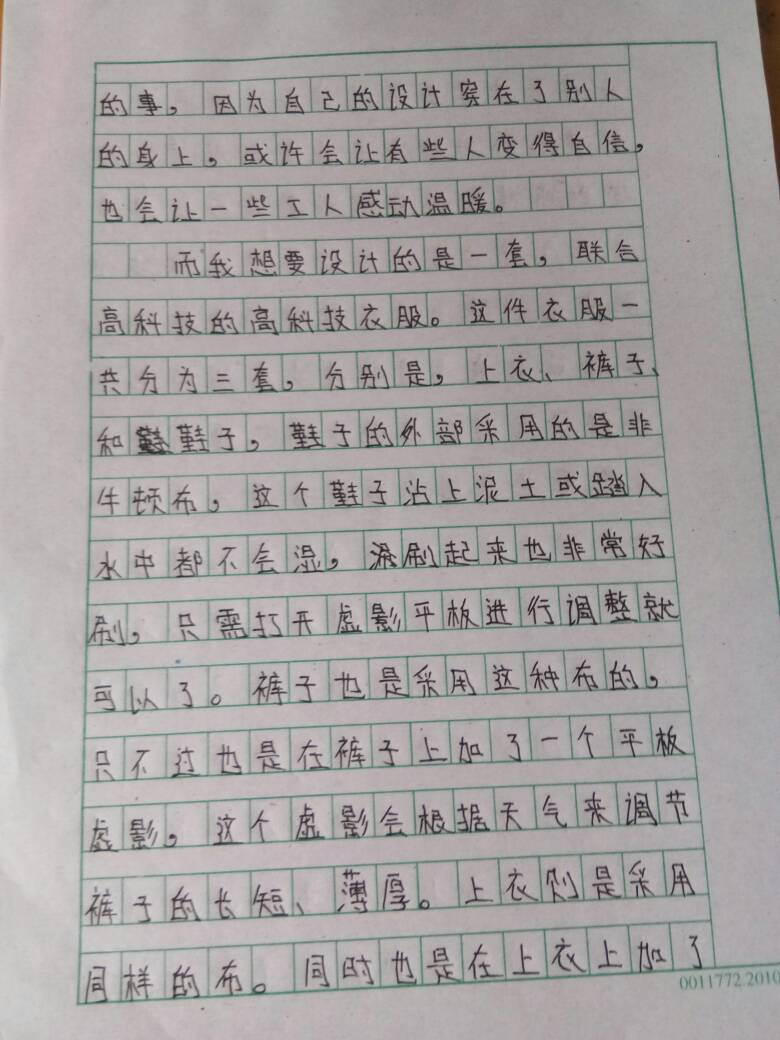 的事，因为自己的设计穿在了别人
的身上，或许会让有些人变得自信，
也会让一些工人感动温暖。
而我想要设计的是一套，联合
高科技的高科技衣服。这件衣服一
共分为三套，分别是，上衣、裤子、
和鞋子，鞋子的外部采用的是非
牛顿布，这个鞋子沾上泥土或踏入
水中都不会湿，刷起来也非常好
刷，只需打开虚影平板进行调整就
可以了。裤子也是采用这种布的，
只不过也是在裤子上加了一个平板
虚影，这个虚影会根据天气来调节
裤子的长短、薄厚。上衣则是采用
同样的布。同时也是在上衣上加了
0011772.2010